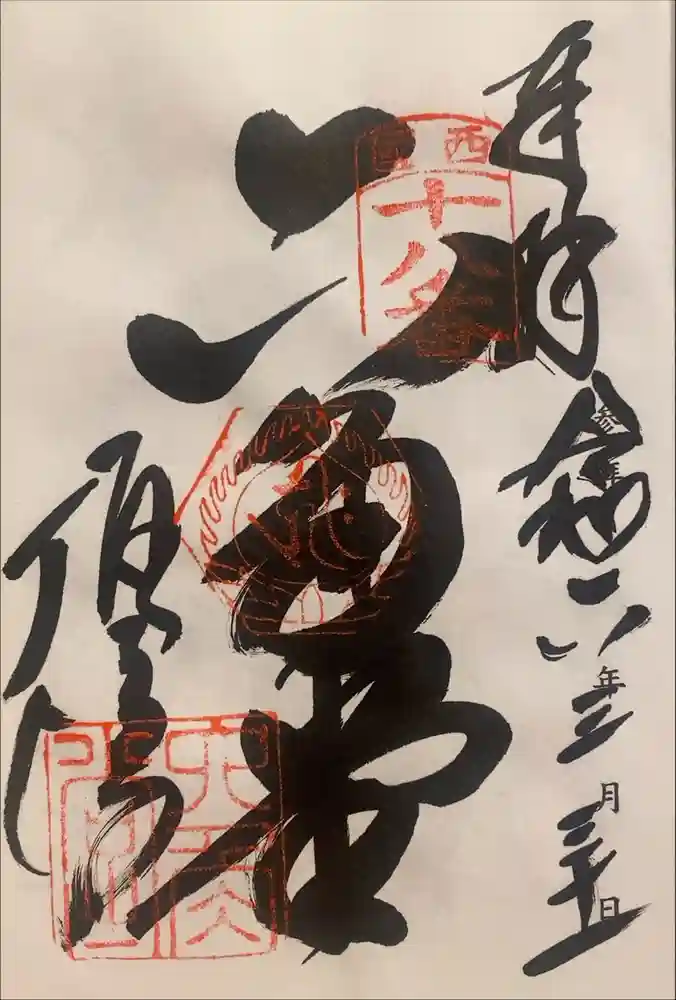 奉拝
令和六年三月三十日
西国
十八番
六角堂
頂法寺